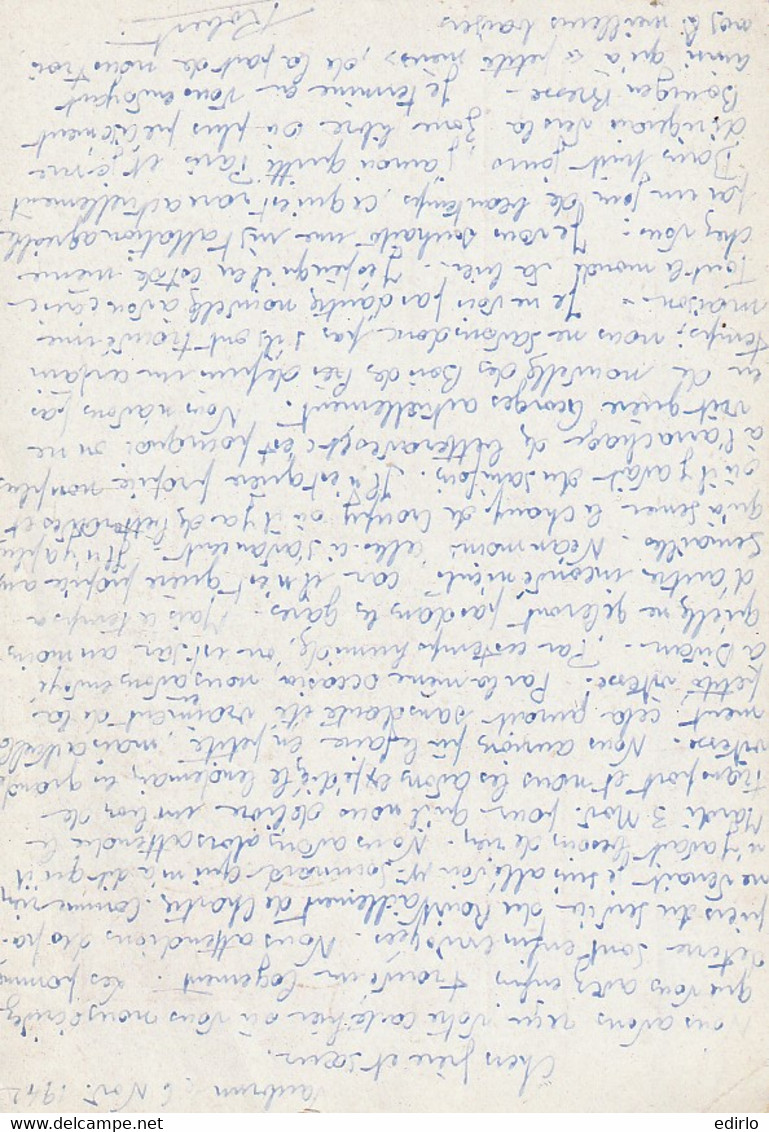 Vaubrun 6 Nov. 1942
Chers frère et sœur.
Nous avons reçu votre carte hier où vous nous écrivez
que vous avez enfin trouvé un logement. Les pommes
de terre sont enfin envoyées. Nous attendions des pa-
piers du service du Ravitaillement de Chartres. Comme rien
ne venait je suis allé voir Mr qui m'a dit qu'il
n'y avait besoin de rien. Nous avons alors attendu le
Mardi 3 Nov. pour qu'il nous délivre un bon de
transport et nous les avons expédiés le lendemain en grande
vitesse. Nous aurions pu le faire en petite, mais actuelle-
ment cela aurait sans doute été vraiment de la
petite vitesse. Par la même occasion nous avons envoyé
à Divan. Par ces temps humides, on est sûr au moins
qu'elles ne gèleront pas dans les gares. Mais ce temps a
d'autres inconvénients car il n'est guère propice aux
semailles. Néanmoins celles-ci s'avancent. Il n'y a plus
qu'à semer le champ de où il y a des betteraves et
où il y avait du sainfoin. Il n'est guère propice non plus
à l'arrachage des betteraves et c'est pourquoi on ne
voit guère Georges actuellement. Nous n'avons pas
eu de nouvelles des Bois des Prés depuis un certain
temps; nous ne savons donc pas s'ils ont trouvé une
maison. Je ne vois pas d'autres nouvelles à vous écrire
Tout le monde va bien. J'espère qu'il en est de même
chez vous. Je vous souhaite une installation agréable
par un jour de beau temps, ce qui est rare actuellement
Dans huit jours, j'aurai quitté Paris et je me
dirigerai vers la zone libre ou plus précisément
Bourg en Bresse - Je termine en vous envoyant
ainsi qu'à "petite mère", de la part de nous trois
nos meilleurs baisers
Robert
edirlo